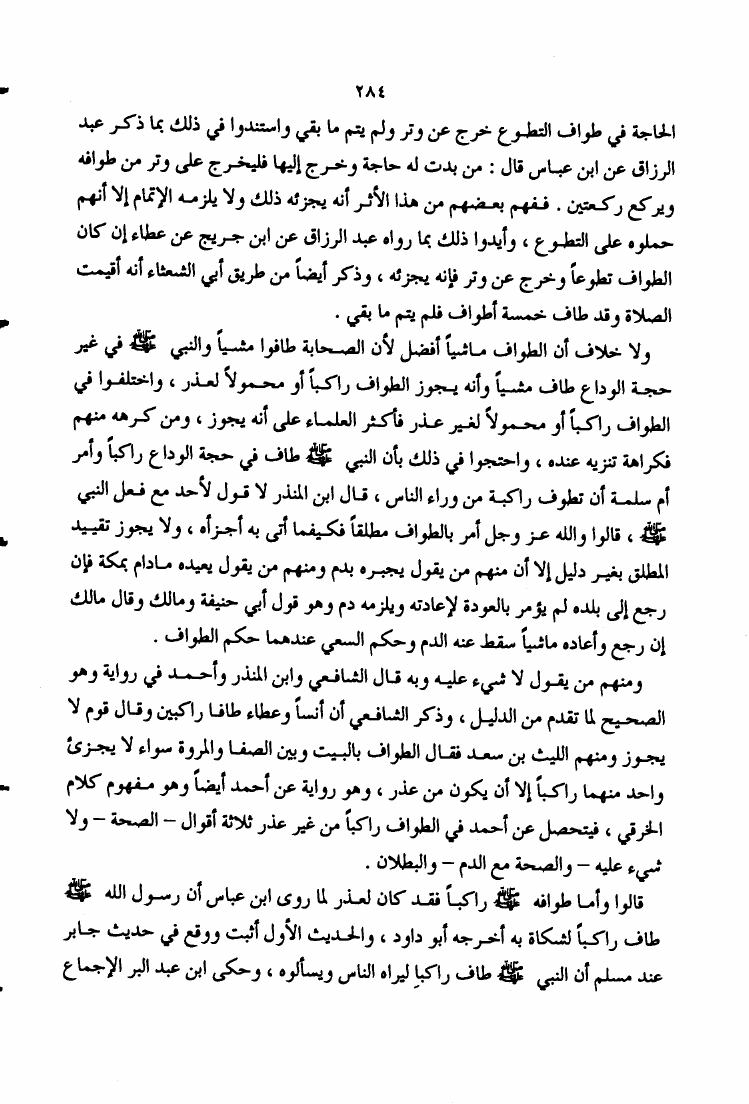 ٢٨٤
الحاجة في طواف التطوع خرج عن وتر ولم يتم ما بقي واستندوا في ذلك بما ذكر عبد
الرزاق عن ابن عباس قال : من بدت له حاجة وخرج إليها فليخرج على وتر من طوافه
ويركع ركعتين . ففهم بعضهم من هذا الأثر أنه يجزئه ذلك ولا يلزمه الإتمام إلا أنهم
حملوه على التطوع ، وأيدوا ذلك بما رواه عبد الرزاق عن ابن جريج عن عطاء إن كان
الطواف تطوعاً وخرج عن وتر فإنه يجزئه ، وذكر أيضاً من طريق أبي الشعثاء أنه أقيمت
الصلاة وقد طاف خمسة أطواف فلم يتم ما بقي .
ولا خلاف أن الطواف ماشياً أفضل لأن الصحابة طافوا مشياً والنبي ﷺ في غير
حجة الوداع طاف مشياً وأنه يجوز الطواف راكباً أو محمولاً لعذر ، واختلفوا في
الطواف راكباً أو محمولاً لغير عذر فأكثر العلماء على أنه يجوز ، ومن كرهه منهم
فكراهة تنزيه عنده ، واحتجوا في ذلك بأن النبي ﷺ طاف في حجة الوداع راكباً وأمر
أم سلمة أن تطوف راكبة من وراء الناس ، قال ابن المنذر لا قول لأحد مع فعل النبي
ﷺ ، قالوا والله عز وجل أمر بالطواف مطلقاً فكيفما أتى به أجزأه ، ولا يجوز تقييد
المطلق بغير دليل إلا أن منهم من يقول يجبره بدم ومنهم من يقول يعيده مادام بمكة فإن
رجع إلى بلده لم يؤمر بالعودة لإعادته ويلزمه دم وهو قول أبي حنيفة ومالك وقال مالك
إن رجع وأعاده ماشياً سقط عنه الدم وحكم السعي عندهما حكم الطواف .
ومنهم من يقول لا شيء عليه وبه قال الشافعي وابن المنذر وأحمد في رواية وهو
الصحيح لما تقدم من الدليل ، وذكر الشافعي أن أنساً وعطاء طافا راكبين وقال قوم لا
يجوز ومنهم الليث بن سعد فقال الطواف بالبيت وبين الصفا والمروة سواء لا يجزئ
واحد منهما راكباً إلا أن يكون من عذر ، وهو رواية عن أحمد أيضاً وهو مفهوم كلام
الخرقي ، فيتحصل عن أحمد في الطواف راكباً من غير عذر ثلاثة أقوال – الصحة – ولا
شيء عليه – والصحة مع الدم – والبطلان .
قالوا وأما طوافه ﷺ راكباً فقد كان لعذر لما روى ابن عباس أن رسول الله ﷺ
طاف راكباً لشكاة به أخرجه أبو داود ، والحديث الأول أثبت ووقع في حديث جابر
عند مسلم أن النبي ﷺ طاف راكبا ليراه الناس ويسألوه ، وحكى ابن عبد البر الإجماع